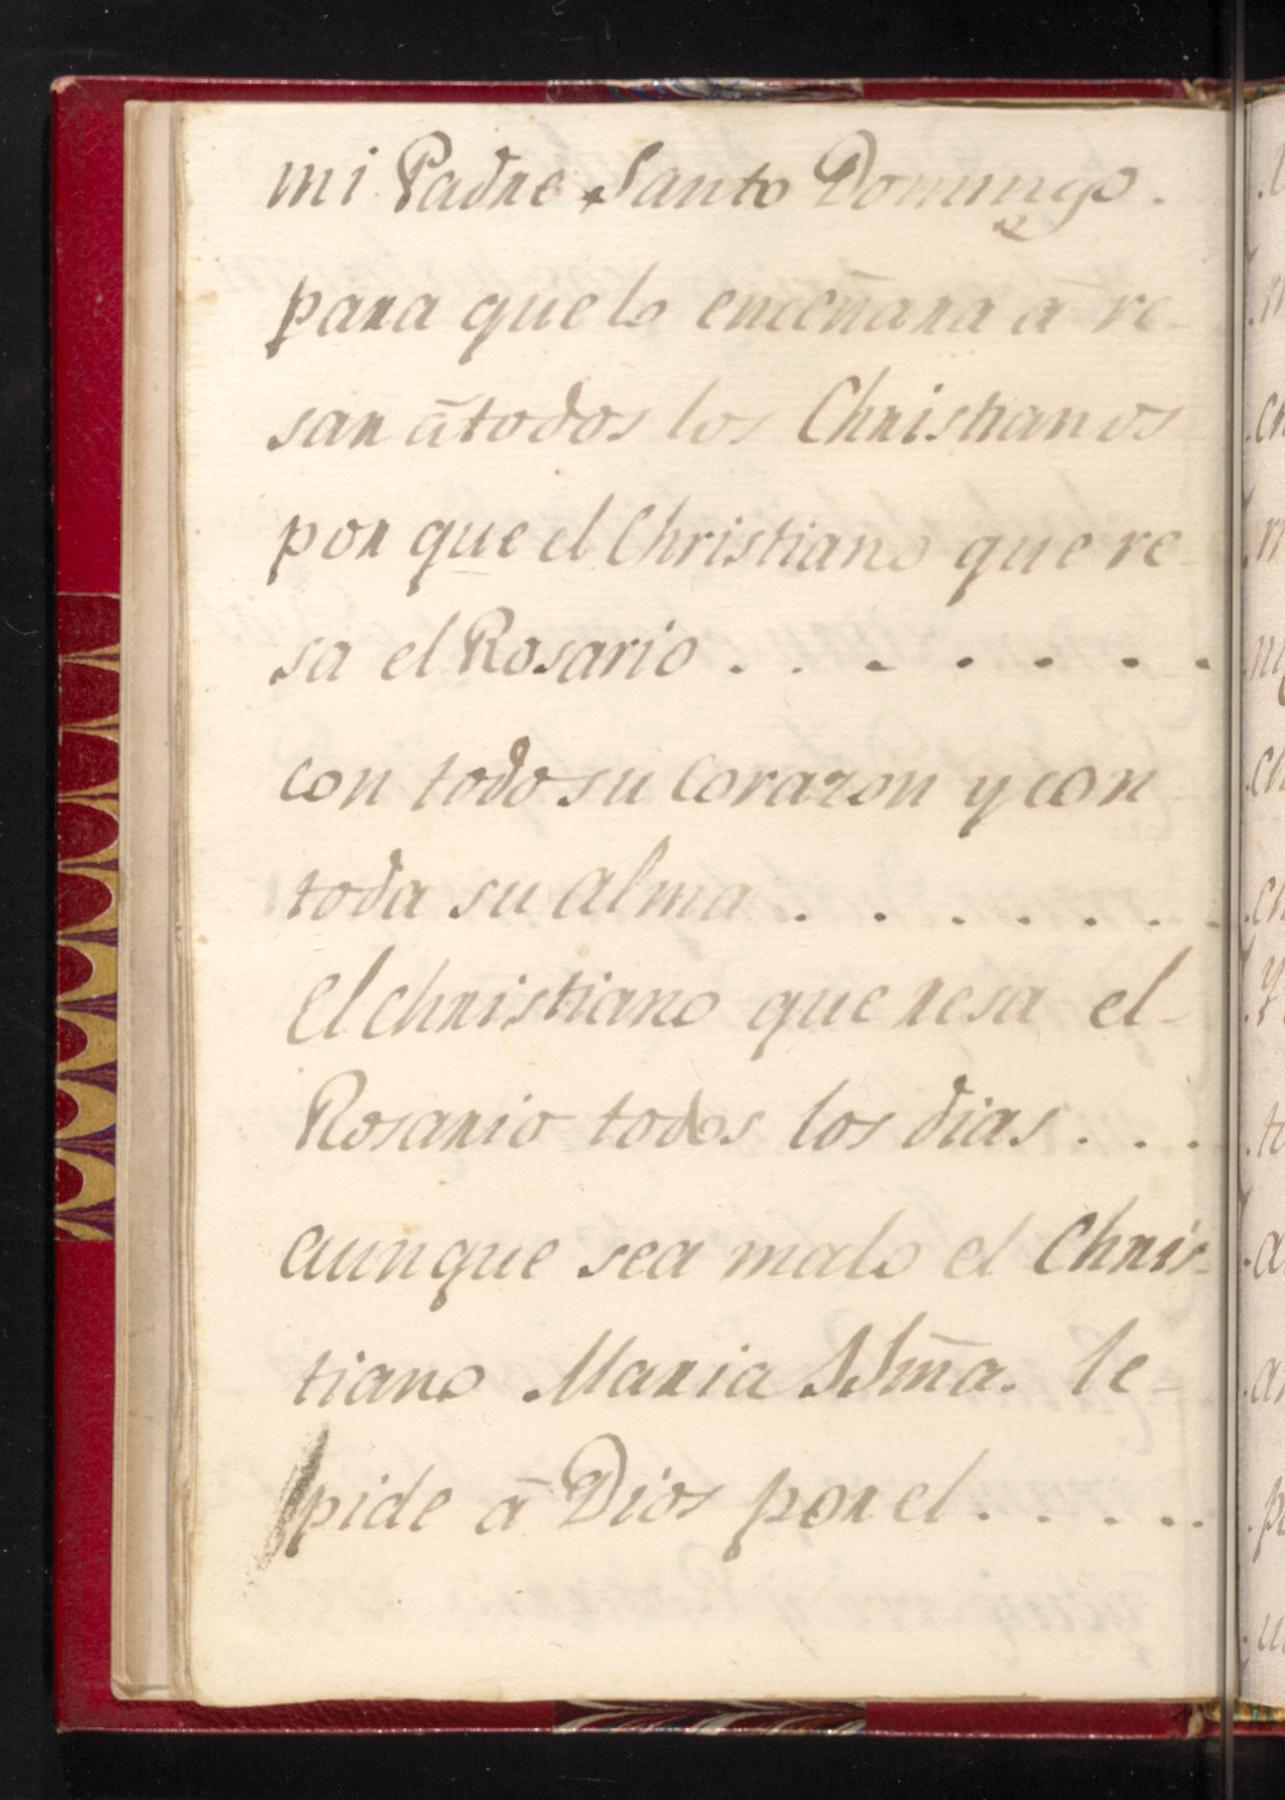 mi Padre Santo Domingo.
para que lo enceñara ā re-
sar ātodos los Christianos
por que el Christiano que re-
sa el Rosario . . . . . . .
con todo su corazon y con-
toda su alma . . . . . . .
El christiano que resa el-
Rosario todos los dias . . .
aunque sea malo el Chris-
tiano Maria SSm̄a. le-
pide ā Dios por el . . . . .